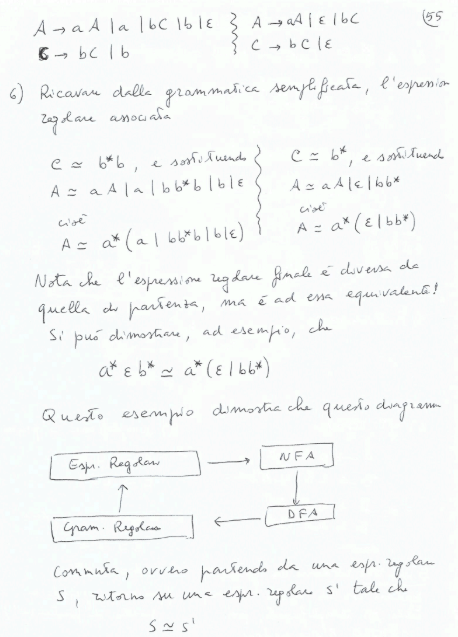 55
A → aA | a | bC | b | ε } A → aA | ε | bC
C → bC | b } C → bC | ε
6) Ricavare dalla grammatica semplificata, l'espressione
regolare associata
C ≃ b*b, e sostituendo } C ≃ b*, e sostituendo
A ≃ aA | a | bb*b | b | ε } A ≃ aA | ε | bb*
cioè } cioè
A ≃ a*(a | bb*b | b | ε) } A ≃ a*(ε | bb*)
Nota che l'espressione regolare finale è diversa da
quella di partenza, ma è ad essa equivalente!
Si può dimostrare, ad esempio, che
a* ε b* ≃ a*(ε | bb*)
Questo esempio dimostra che questo diagramma
Espr. Regolare → NFA
Gram. Regolare ← DFA
Commuta, ovvero partendo da una espr. regolare
S, ritorno su una espr. regolare s' tale che
S ≃ s'